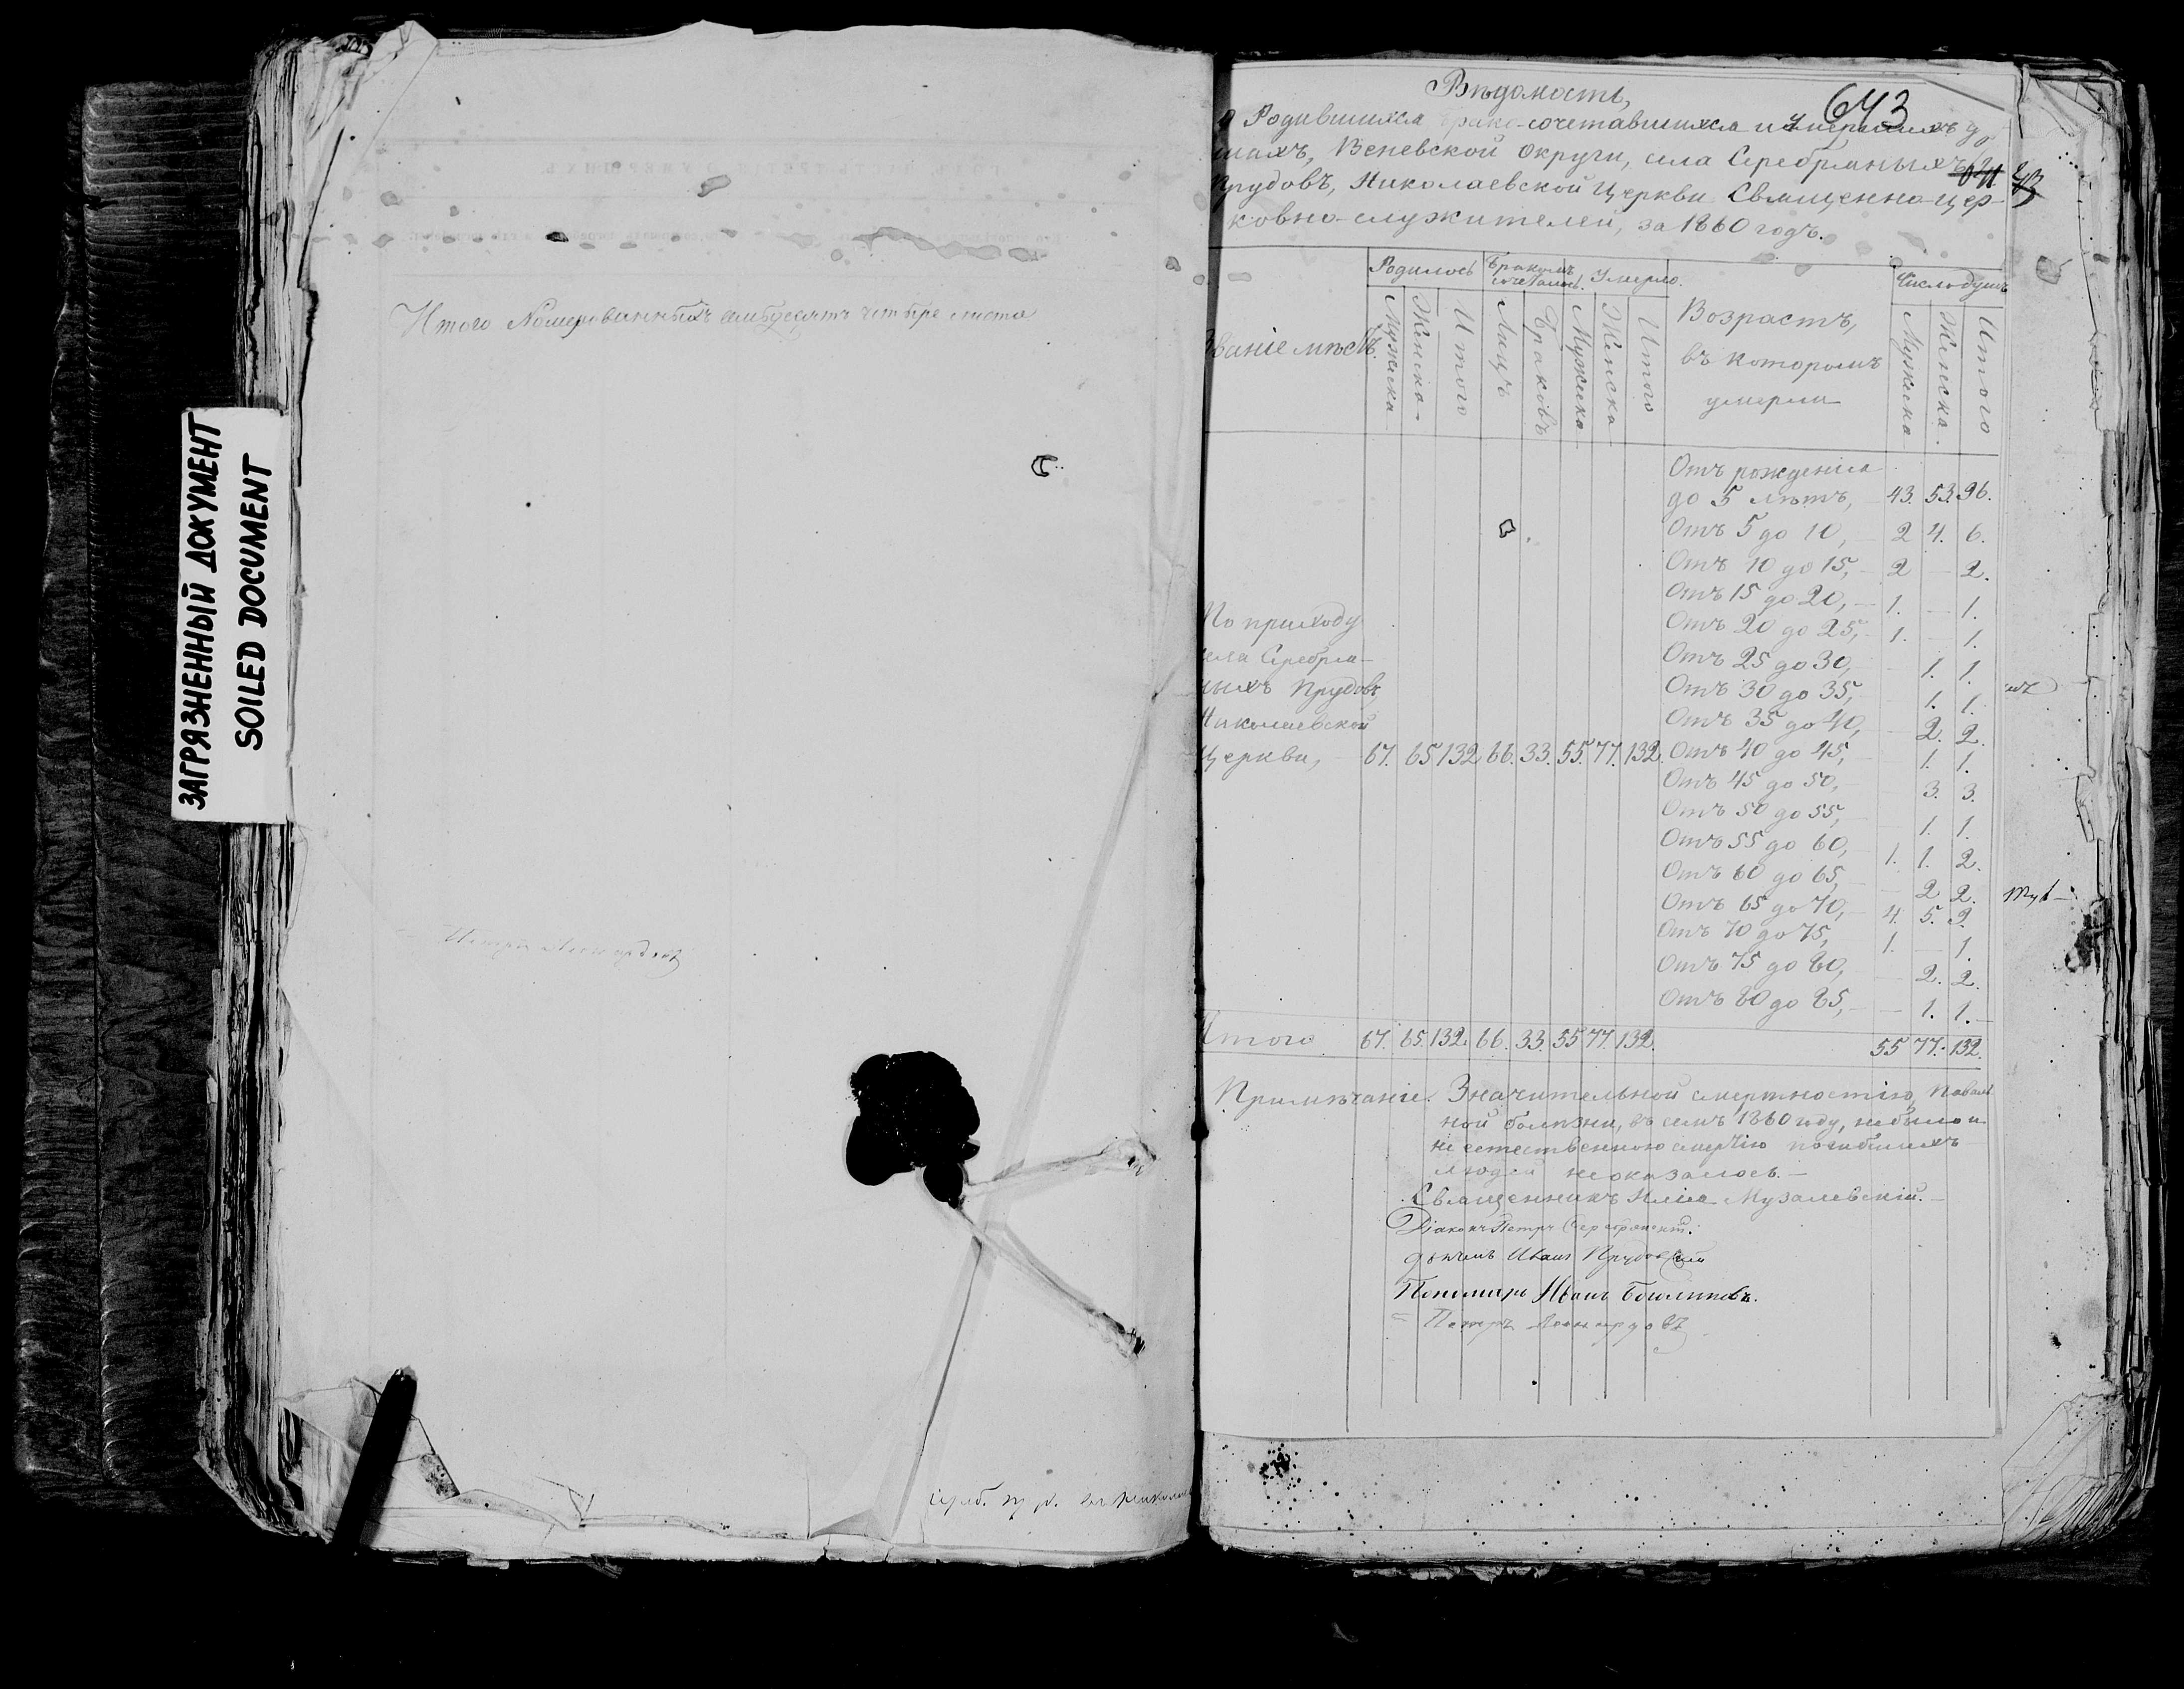 ЗАГРЯЗНЕННЫЙ ДОКУМЕНТ
SOILED DOCUMENT
Итого Номерованныхъ семьдесятъ четыре листа
Вѣдомость,
643
о Родившихся брако-сочетавшихся и умершихъ ду-
шахъ, Веневской Округи, села Серебряныхъ
Прудовъ, Николаевской Церкви Священно-цер-
ковно-служителей, за 1860 годъ.
Званіе мѣстъ.
Родилось
Бракомъ сочеталось.
Умерло.
Возрастъ,
въ которомъ
умерли
Число душъ
Мужеска
Женска
Итого
Лицъ
Браковъ
Мужеска
Женска
Итого
Мужеска
Женска
Итого
Отъ рожденія
до 5 лѣтъ, 43. 53. 96.
Отъ 5 до 10, 2 4. 6.
Отъ 10 до 15, 2 — 2.
Отъ 15 до 20, 1. — 1.
Отъ 20 до 25, 1. — 1.
Отъ 25 до 30, — 1. 1.
Отъ 30 до 35, — 1. 1.
Отъ 35 до 40, — 2. 2.
Отъ 40 до 45, — 1. 1.
Отъ 45 до 50, — 3. 3.
Отъ 50 до 55, — 1. 1.
Отъ 55 до 60, 1. 1. 2.
Отъ 60 до 65, — 2 2.
Отъ 65 до 70, 4. 5. 9.
Отъ 70 до 75, 1. — 1.
Отъ 75 до 80, — 2. 2.
Отъ 80 до 85, — 1. 1.
По приходу
села Серебря-
ныхъ Прудовъ,
Николаевской
Церкви, 67. 65 132 66. 33. 55. 77. 132.
Итого 67. 65. 132. 66. 33. 55 77. 132. 55 77. 132.
Примѣчаніе. Значительной смертностію, поваль
ной болѣзни, въ семъ 1860 году, небыло и
не естественною смертію погибшихъ
людей неоказалось.—
Священникъ Илія Музалевскій.—
Діаконъ Петръ
Иванъ Прудовскій
Пономарь Иванъ
Петръ